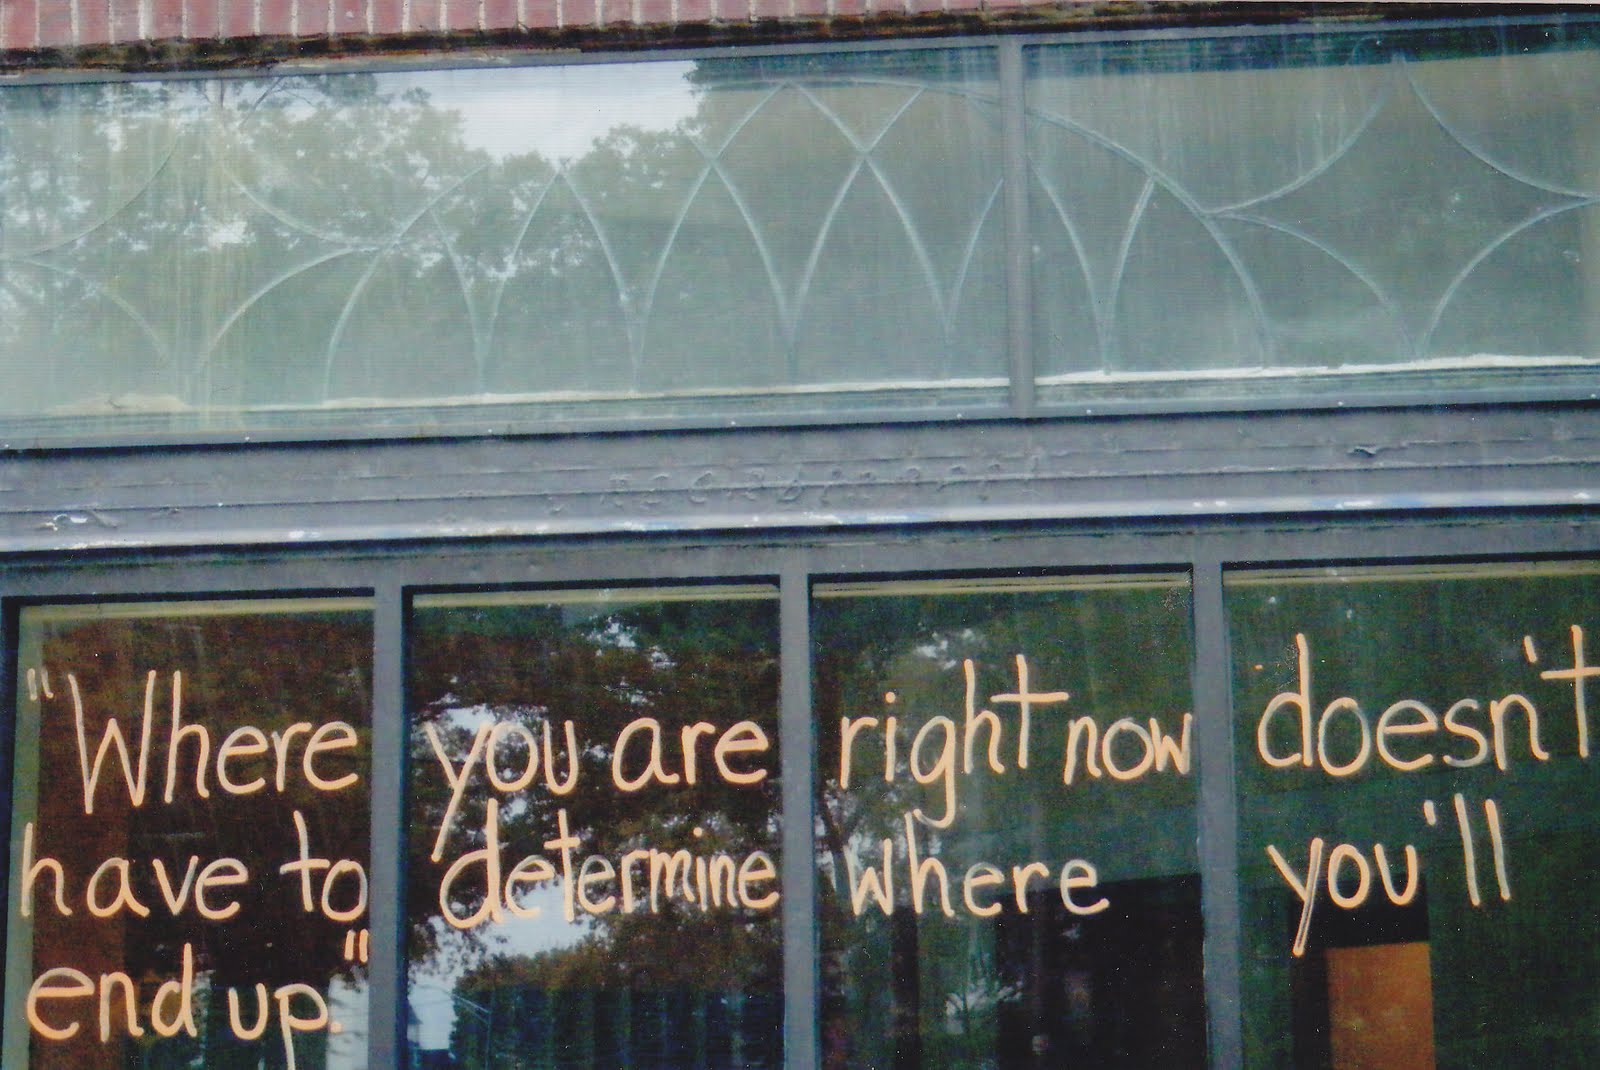 "Where you are right now doesn't
have to determine where you'll
end up."